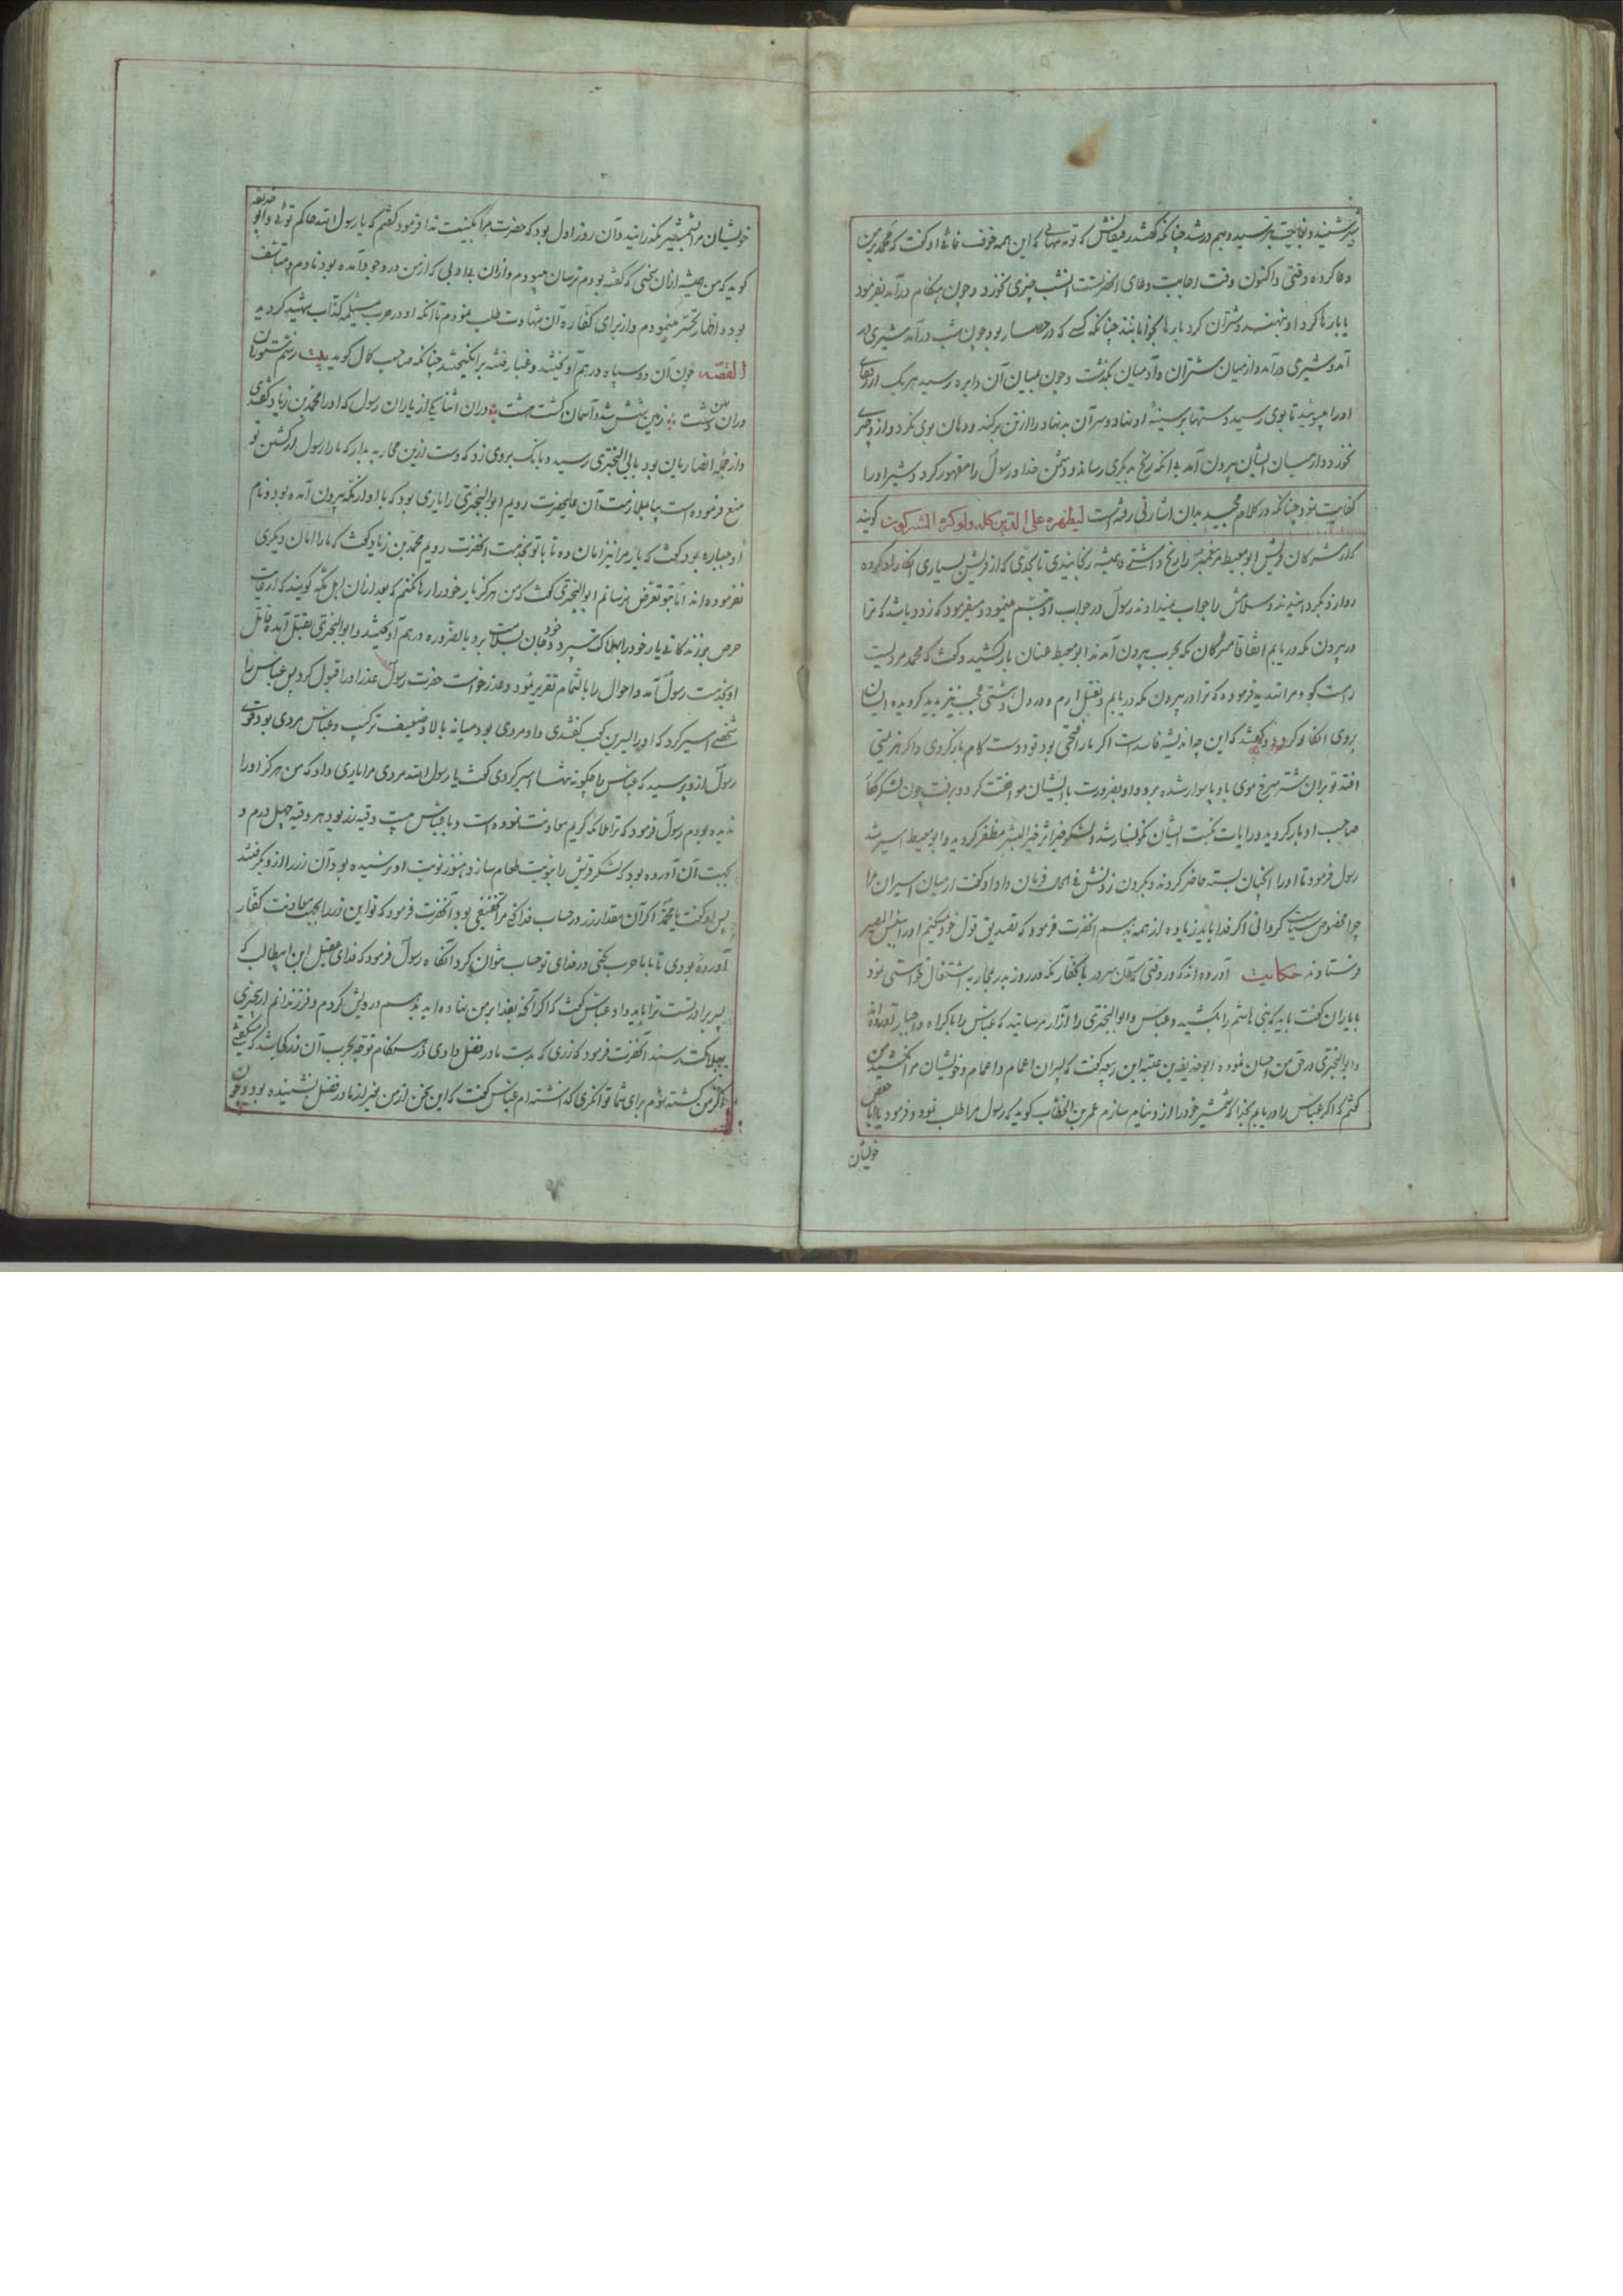 شیر شنید و بغایت بترسید و بیم در شد چنانکه گفتند رفیقانش که تو مهابی که این همه خوف نمائی او گفت که محمد بر من
دعا کرده وقتی و اکنون وقت اجابت دعای آنحضرتست امشب چیزی نخورد و چون هنگام درآمد بفرمود
تا بارها گرد او بنهند و شتران گرد بارها بخوابانند چنانکه کسی که در حصار بود چون شب درآمد شیری در
آمد و شیری درآمد و از میان شتران و آدمیان بگذشت و چون بمیان آن دایره رسید هر یک از رفقای
او را ببوئید تا بوی رسید دستها بر سینه او نهاد و سر آن بدنهاد را از تن برکند و دهان بوی نکرد و از و چیزی
نخورد و از میان ایشان بیرون آمد بی آنکه رنج بدیگری رساند و دشمن خدا و رسول را مقهور کرد و شیر او را
کفایت نمود چنانکه در کلام مجید بدان اشارتی رفته است لیظهره علی الدین کله ولو کره المشرکون گویند
که از مشرکان قریش ابو معیط مر پیغمبر را رنج داشتی و همیشه رنجانیدی تا بحدی که از قریش بسیاری انکار او کرده
روا از و بگردانیدند و سلامش را جواب نمیدادند رسول در جواب او تبسم مینمود و میفرمود که زود باشد که ترا
در بیرون مکه دریابم اتفاقا مشرکان مکه بحرب بیرون آمدند ابو معیط عنان باز کشید و گفت که محمد مردیست
راست گو و مرا تهدید فرموده که ترا در بیرون مکه دریابم و بقتل ارم و در دل وحشتی عجب نیز پدید گردیده ایشان
بروی انکار کردند و گفتند که این چه اندیشه فاسد است اگر ما را فتحی بود تو دوست کام بازگردی و اگر هزیمتی
افتد تو بران شتر سرخ موی بادپا سوار شده برو و او بضرورت با ایشان موافقت کرد و برفت چون لشکرگاه
صاحب ادبار گردید و رایات نکبت ایشان نگونسار شد و لشکر خیر اثر خیر البشر مظفر گردید و ابو معیط اسیر شد
رسول فرمود تا او را آنچنان بسته حاضر کردند و بگردن زدنش فی الحال فرمان داد او گفت از میان اسیران مرا
چرا مخصوص سیاست گردانی اگر فدا باید زیاده از همه بدهم آنحضرت فرمود که تصدیق قول خود میکنم او را ببئس المصیر
فرستادند حکایت آورده اند که در وقتی که آن سرور با کفار مکه در روز بدر بمحاربه اشتغال خواستی نمود
با یاران گفت باید که بنی هاشم را مکشید و عباس و ابوالبختری را آزار مرسانید که عباس را باکراه و اجبار آورده اند
و ابوالبختری در حق من احسان نموده ابو حذیفه بن عتبه ابن ربیعه گفت که پسران اعمام و اعمام و خویشان ما را کشتید من
گفتم که اگر عباس را دریابم بخدا که شمشیر خود را از و نیام سازم عمر بن الخطاب گوید که رسول مرا طلب نمود و فرمود یا ابا حفص
خویشان
خویشان مرا بشمشیر بگذرانید و آن روز اول بود که حضرت مرا بکنیت ندا فرمود گفتم که یا رسول الله حاکم توئی و ابو حذیفه
گوید که من همیشه ازان سخنی که گفته بودم ترسان میبودم و ازان بی ادبی که از من در وجود آمده بود نادم و متاسف
بوده اظهار تحسر مینمودم و از برای کفاره آن شهادت طلب مینمودم تا آنکه او در حرب مسیلمه کذاب شهید گردید
القصه چون آن دو سپاه در هم آویختند و غبار فتنه برانگیختند چنانکه صاحب کمال گوید بیت ز سم ستوران
دران پهن دشت زمین شش شد و آسمان گشت هشت دران اثنا یکی از یاران رسول که او را محمد بن زیاد گفتندی
و از جمله انصاریان بود بابی البختری رسید و بانگ بروی زد که دست ازین محاربه بدار که ما را رسول از کشتن تو
منع فرموده است بیا بملازمت آن علیحضرت رویم ابوالبختری را یاری بود که با او از مکه بیرون آمده بود و نام
او جباره بود گفت که یار مرا نیز امان ده تا با تو بخدمت آنحضرت رویم محمد بن زیاد گفت که ما را امان دیگری
نفرموده اند اما بتو تعرض نرسانم ابوالبختری گفت که من هرگز یار خود را رها نکنم که بعد ازان اهل مکه گویند که از غایت
حرص بر زندگانی یار خود را بهلاک سپرد و خود جان بسلامت برد بالضروره در هم آویختند و ابوالبختری بقتل آمد قاتل
او بخدمت رسول آمد و احوال را بالتمام تقریر نمود و عذر خواست حضرت رسول عذر او را قبول کرد پس عباس را
شخصی اسیر کرد که او را الیسر بن کعب گفتندی و او مردی بود میانه بالا و ضعیف ترکیب و عباس مردی بود قوی
رسول از و پرسید که عباس را چگونه تنها اسیر کردی گفت یا رسول الله مردی مرا یاری داد که من هرگز او را
ندیده بودم رسول فرمود که ترا ملائکه کریم معاونت نموده است و با عباس بیست وقیه زر بود هر وقیه چهل درم و
بجهت آن آورده بود که لشکر قریش را بنوبت طعام سازد هنوز نوبت او نرسیده بود آن زر را از و بگرفتند
پس او گفت یا محمد اگر آن مقدار زر در حساب فدا کنی مرا تخفیفی بود آنحضرت فرمود که تو این زر را بجهت معاونت کفار
آورده بودی تا با ما حرب کنی در فدای تو حساب نتوان کرد آنگاه رسول فرمود که فدای عقیل ابن ابیطالب که
پسر برادر تست ترا باید داد عباس گفت که اگر آنچه بفدا بر من نهاده اید بدهم درویش گردم و فرزندانم از بی چیزی
بهلاکت رسند آنحضرت فرمود که زری که بدست مادر فضل دادی در هنگام توجه بحرب آن زر کی باشد که میگفتی
اگر من کشته شوم برای شما توانگری گذاشته ام عباس گفت که این سخن از من غیر از مادر فضل نشنیده بود و چون